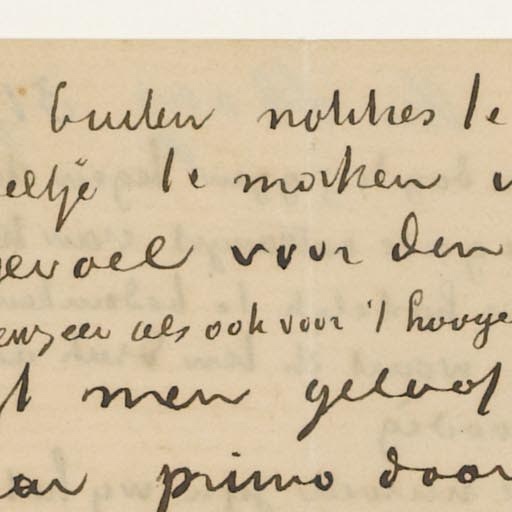 buiten notities te
eeltje te maken
gevoel voor den
evenzeer als ook voor 't hooge
gt men geloof
ar primo door